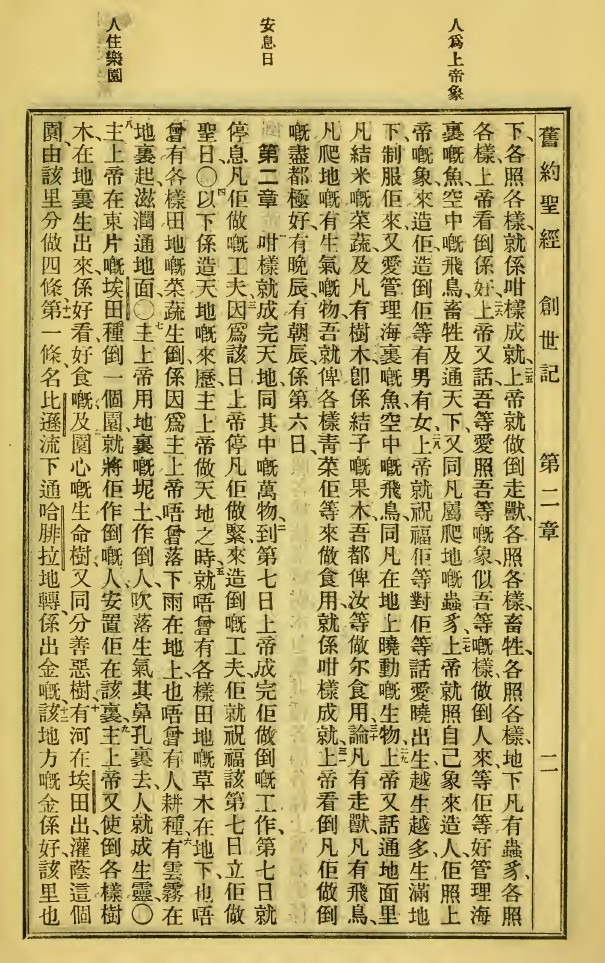 人爲上帝象
安息日
人住樂園
舊約聖經 創世記 第二章 二
下、各照各樣、就係咁樣成就、二五上帝就做倒走獸、各照各樣、畜牲、各照各樣、地下凡有蟲豸、各照
各樣、上帝看倒係好、二六上帝又話、吾等愛照吾等嘅象、似吾等嘅樣、做倒人來、等佢等好管理海
裏嘅魚、空中嘅飛鳥、畜牲、及通天下、又同凡屬爬地嘅蟲豸、二七上帝就照自己象來造人、佢照上
帝嘅象來造佢、造倒佢等有男有女、二八上帝就祝福佢等、對佢等話、愛曉出生越生越多、生滿地
下、制服佢來、又愛管理海裏嘅魚、空中嘅飛鳥、同凡在地上曉動嘅生物、二九上帝又話、通地面里
凡結米嘅菜蔬、及凡有樹木、卽係結子嘅果木、吾都俾汝等做尔食用、三十論凡有走獸、凡有飛鳥、
凡爬地嘅有生氣嘅物、吾就俾各樣靑菜佢等來做食用、就係咁樣成就、三一上帝看倒凡佢做倒
嘅盡都極好、有晚辰有朝辰、係第六日、
第二章 一咁樣就成完天地、同其中嘅萬物、二到第七日上帝成完佢做倒嘅工作、第七日就
停息凡佢做嘅工夫、三因爲該日上帝停凡佢做緊來造倒嘅工夫、佢就祝福該第七日、立佢做
聖日、〇四以下係造天地嘅來歷、主上帝做天地之時、五就唔曾有各樣田地嘅草木在地下、也唔
曾有各樣田地嘅菜蔬生倒、係因爲主上帝唔曾落下雨在地上、也唔曾有人耕種、六有雲霧在
地裏起、滋潤通地面、〇七主上帝用地裏嘅坭土作倒人、吹落生氣其鼻孔裏去、人就成生靈、〇
八主上帝在東片嘅埃田、種倒一個園、就將佢作倒嘅人、安置佢在該裏、九主上帝又使倒各樣樹
木、在地裏生出來、係好看好食嘅、及園心嘅生命樹、又同分善惡樹、十有河在埃田出、灌蔭這個
園、由該里分做四條、十一第一條、名比遜、流下通哈腓拉地轉、係出金嘅、十二該地方嘅金係好、該里也